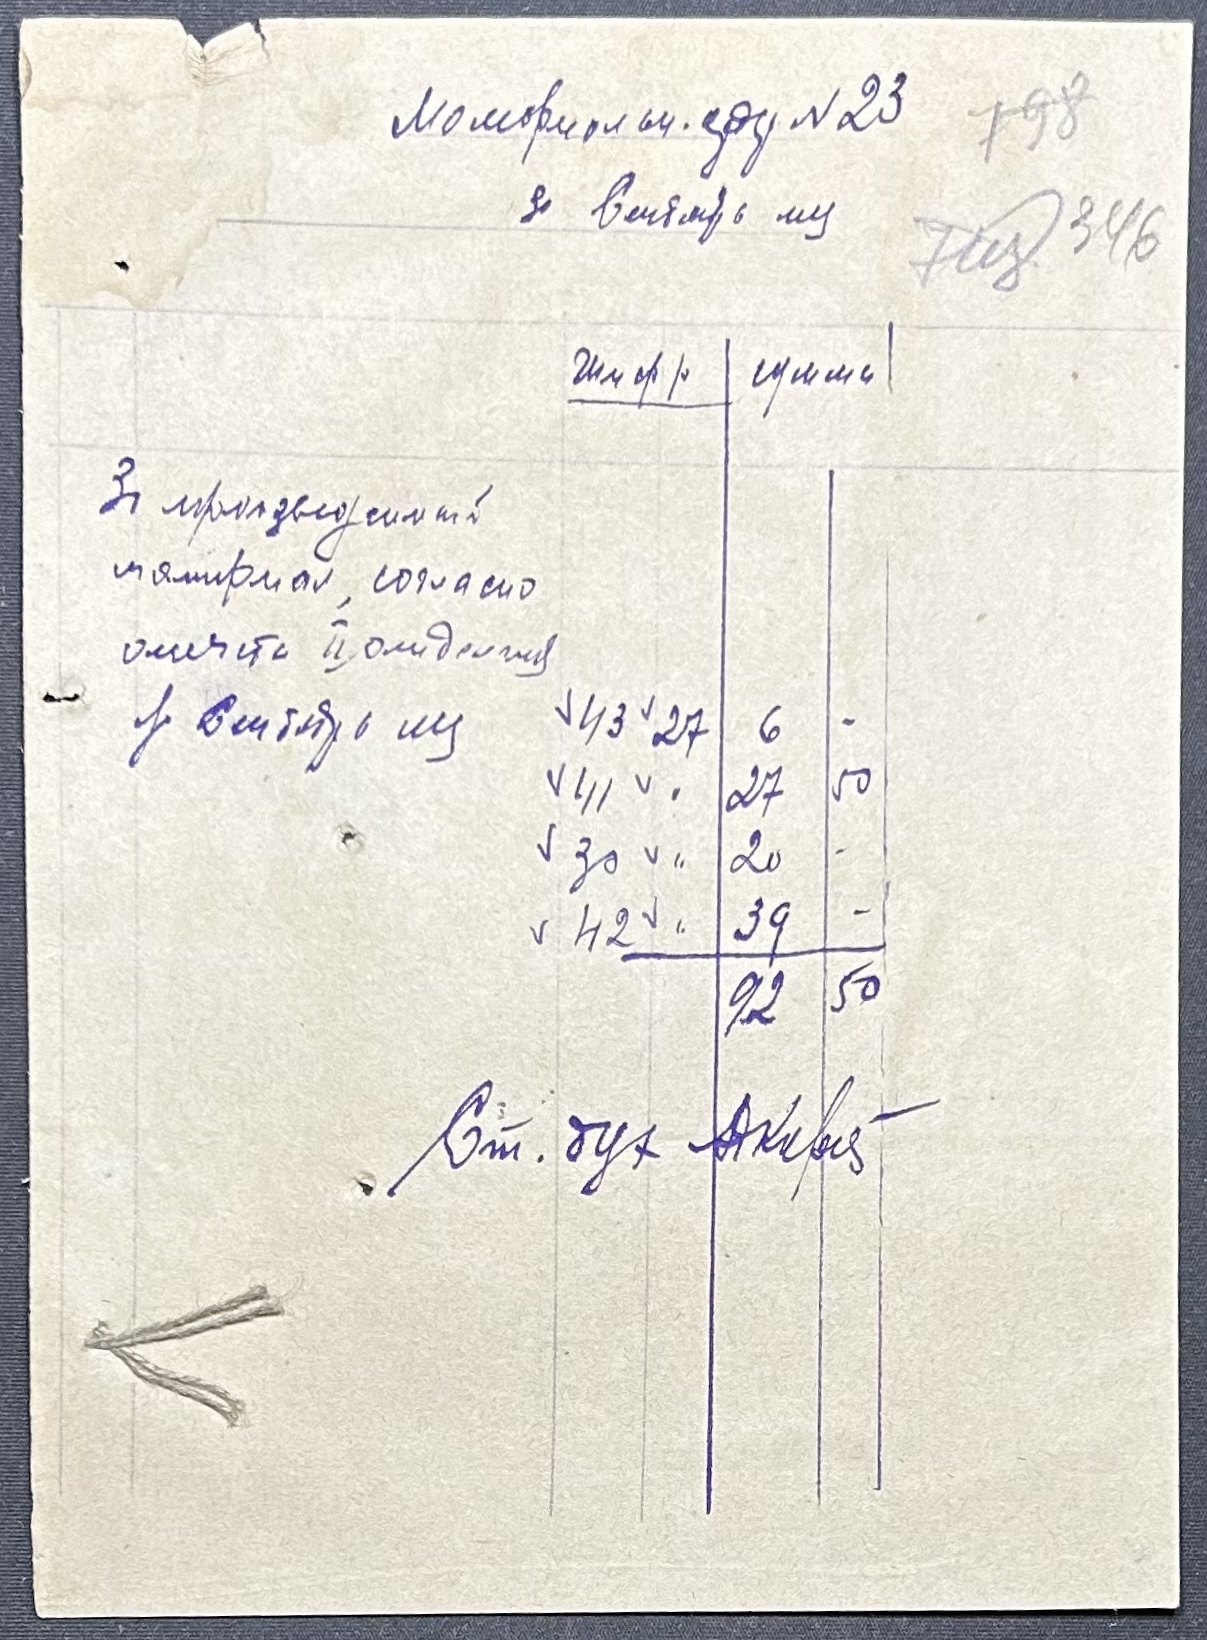 Мемориальн. орд N 23
798
за Сентябрь м-ц
346
Шифр сумма
За произведенный
материал, согласно
отчета II, отделения
за Сентябрь м-ц 43 27 6 -
41 " 27 50
30 " 20 -
42 " 39 -
92 50
Ст. бух